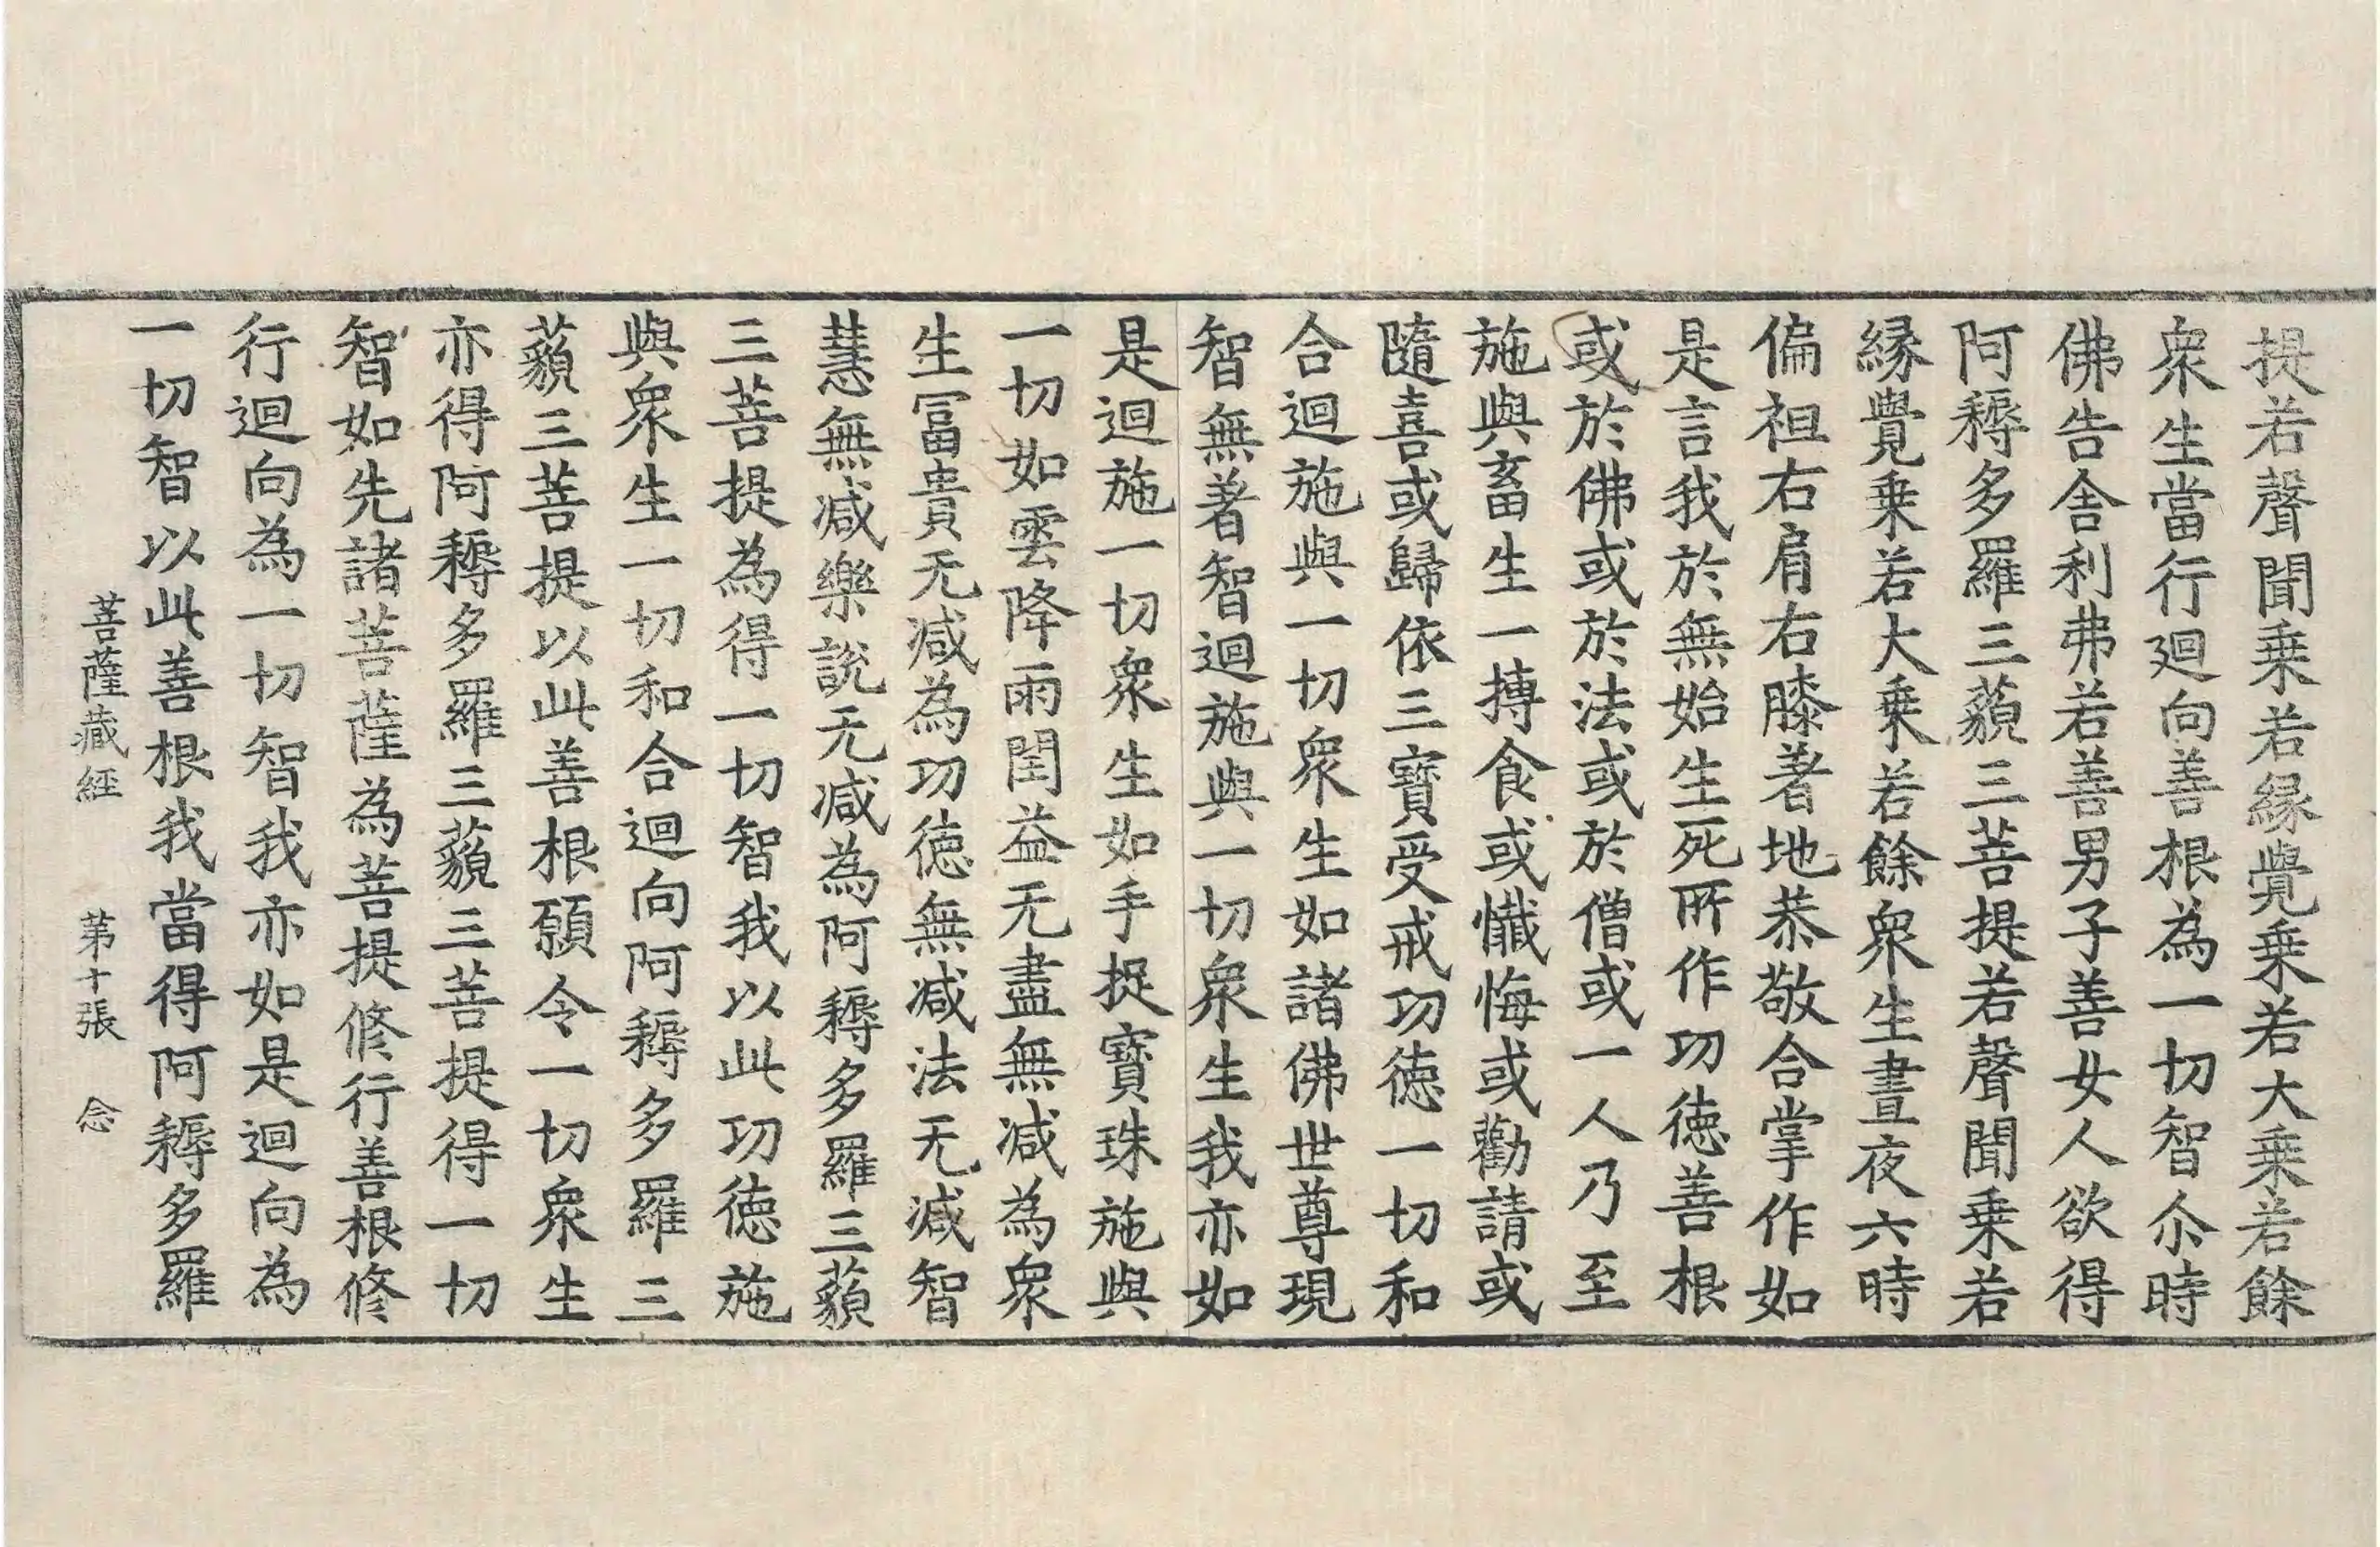 提若聲聞乗若緣覺乗若大乗若餘
衆生當行迴向善根為一切智尒時
佛告舎利弗若善男子善女人欲得
阿耨多羅三藐三菩提若聲聞乗若
緣覺乗若大乗若餘衆生晝夜六時
偏袒右肩右膝著地恭敬合掌作如
是言我於無始生死所作功徳善根
或於佛或於法或於僧或一人乃至
施與畜生一摶食或懺悔或勸請或
隨喜或歸依三寶受戒功徳一切和
合迴施與一切衆生如諸佛世尊現
智無著智迴施與一切衆生我亦如
是迴施一切衆生如手捉寶珠施與
一切如雲降雨閏益无盡無減為衆
生冨貴无減為功徳無減法无減智
慧無減樂說无減為阿耨多羅三藐
三菩提為得一切智我以此功徳施
與衆生一切和合迴向阿耨多羅三
藐三菩提以此善根願令一切衆生
亦得阿耨多羅三藐三菩提得一切
智如先諸菩薩為菩提修行善根修
行迴向為一切智我亦如是迴向為
一切智以此善根我當得阿耨多羅
菩薩藏經 苐十張 念